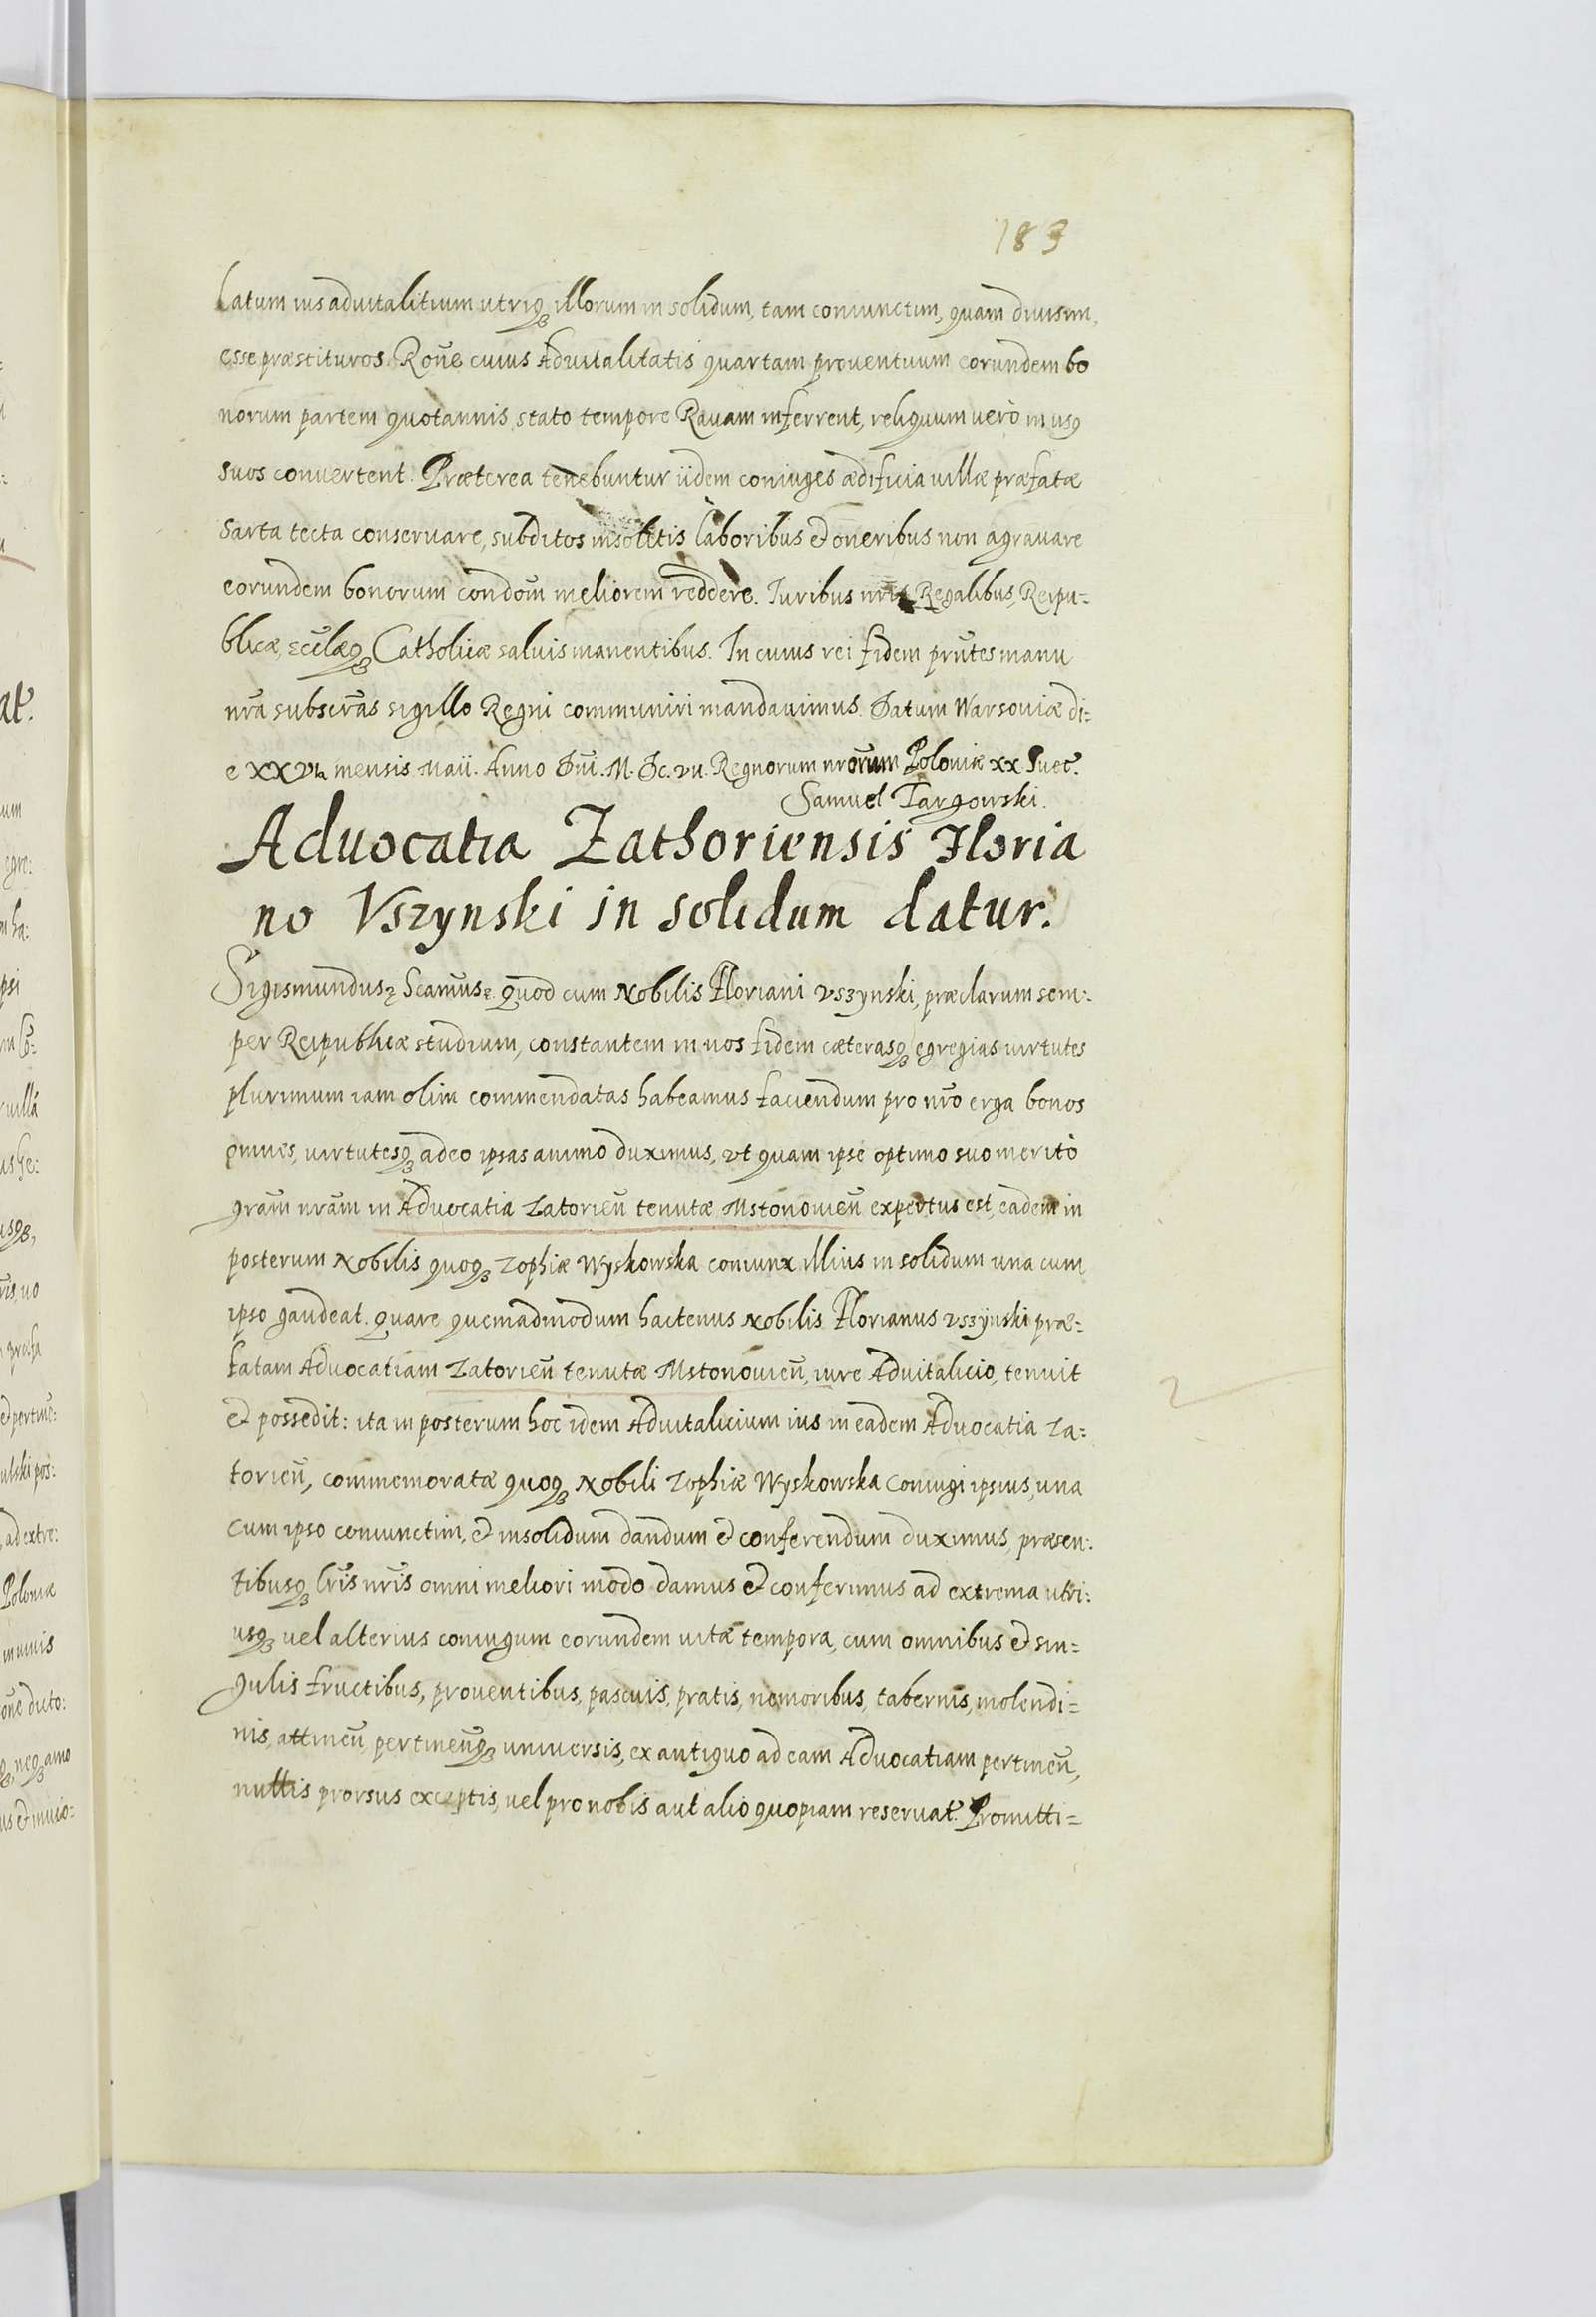 183
Latum ius aduitalitium utriqꝫ illorum in solidum, tam coniunctim, quam diuisim,
esse præstituros. Rone͂ cuius Aduitalitatis quartam prouentuum eorundem bo
norum partem quotannis stato tempore Rauam inferrent, reliquum uerò in usꝰ
suos conuertent. Præterea tenebuntur iidem coniuges ædificia uillæ præfatæ
sarta tecta conseruare, subditos insolitis laboribus & oneribus non agrauare
eorundem bonorum condom͂ meliorem reddere. Iuribus nris͂ Regalibus, Reipu=
blicæ, Eccl͂æqꝫ Catholicæ saluis manentibus. In cuius rei fidem prn͂tes manu
nr͂a subscr͂as sigillo Regni communiri mandauimus. Datum Warsouiæ di=
e XXVIa mensis Maii. Anno Dn͂i. M. Dc. vii. Regnorum nr͂orum Poloniæ xx Suet͂.
Samuel Targowski.
Aduocatia Zathoriensis Floria
no Vszynski in solidum datur.
Sigismundus ꝛ Scamus͂ ꝛ. Quod cum Nobilis Floriani Vszynski, præclarum sem=
per Reipublicæ studium, constantem in nos fidem cæterasqꝫ egregias uirtutes
plurimum iam olim commendatas habeamus faciendum pro nr͂o erga bonos
omnes, uirtutesqꝫ adeo ipsas animo duximus, ut quam ipse optimo suo meritò
gram͂ nram͂ in Aduocatia Zatorien͂ tenutæ Mstonouien͂ expertus est, eadem in
posterum Nobilis quoqꝫ Zophiæ Wyskowska coniunx illius in solidum una cum
ipso gaudeat. Quare quemadmodum hactenus Nobilis Florianus Vszynski præ=
fatam Aduocatiam Zatorien͂ tenutæ Mstonouien͂, iure Aduitalicio, tenuit
& possedit: ita in posterum hoc idem Aduitalicium ius in eadem Aduocatia Za=
torien͂, commemoratæ quoqꝫ Nobili Zophiæ Wyskowska Coniugi ipsius, una
cum ipso coniunctim, & in solidum dandum & conferendum duximus, præsen=
tibusqꝫ lr͂is nr͂is omni meliori modo damus & conferimus ad extrema utri=
usqꝫ uel alterius coniugum eorundem uitæ tempora, cum omnibus & sin=
gulis fructibus, prouentibus, pascuis, pratis, nemoribus, tabernis, molendi=
nis, attinen͂ pertinen͂qꝫ uniuersis, ex antiquo ad eam Aduocatiam pertinen͂,
nullis prorsus exceptis, uel pro nobis aut alio quopiam reseruat͂. Promitti=